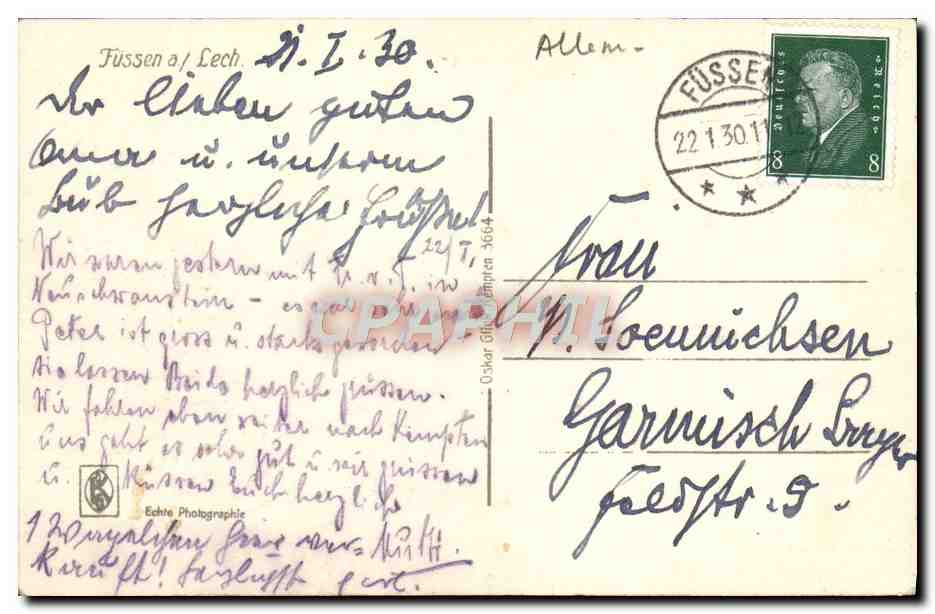 Füssen a/ Lech. 21. I. 30.
Allem-
Der lieben guten
Oma u. unserm
Bub herzliche Grüsse!
22/I.
Wir waren gestern mit in
Neuschwanstein - es war sehr
Peter ist gross u. stark geworden
sie lassen Beide herzlich grüssen.
Wir fahren eben weiter nach Kempten
Uns geht es sehr gut u. wir grüssen
u. küssen Euch herzlich
Mutti.
1 Wägelchen hier ver-
kauft! herzlichst
Echte Photographie
Oskar Kempten 3664
CPAPHIL
FÜSSEN
22.1.30.11-12
Deutsches Reich
8 8
Frau
Soennichsen
Garmisch Bayern
Feldstr. 9.